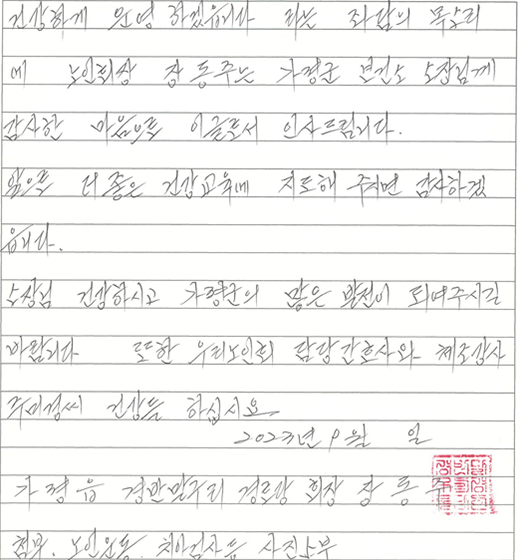 건강하게 운영 하겠읍니다 라는 좌담의 목소리
에 노인회장 장동주는 가평군 보건소 소장님께
감사한 마음으로 이글로서 인사드립니다.
앞으로 더 좋은 건강교육에 지도해 주시면 감사하겠
읍니다.
소장님 건강하시고 가평군의 많은 발전이 되여주시길
바람니다 또한 우리노인회 담당간호사와 체조강사
주미경씨 건강들 하십시요
2023년 9월 일
가평읍 경반말구리 경로당 회장 장동주
첨부. 노인운동. 치아검사등 사진첨부